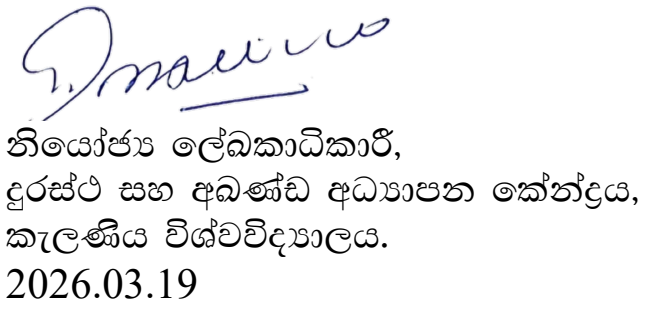 නියෝජ්‍ය ලේඛකාධිකාරී,
දුරස්ථ සහ අඛණ්ඩ අධ්‍යාපන කේන්ද්‍රය,
කැලණිය විශ්වවිද්‍යාලය.
2026.03.19